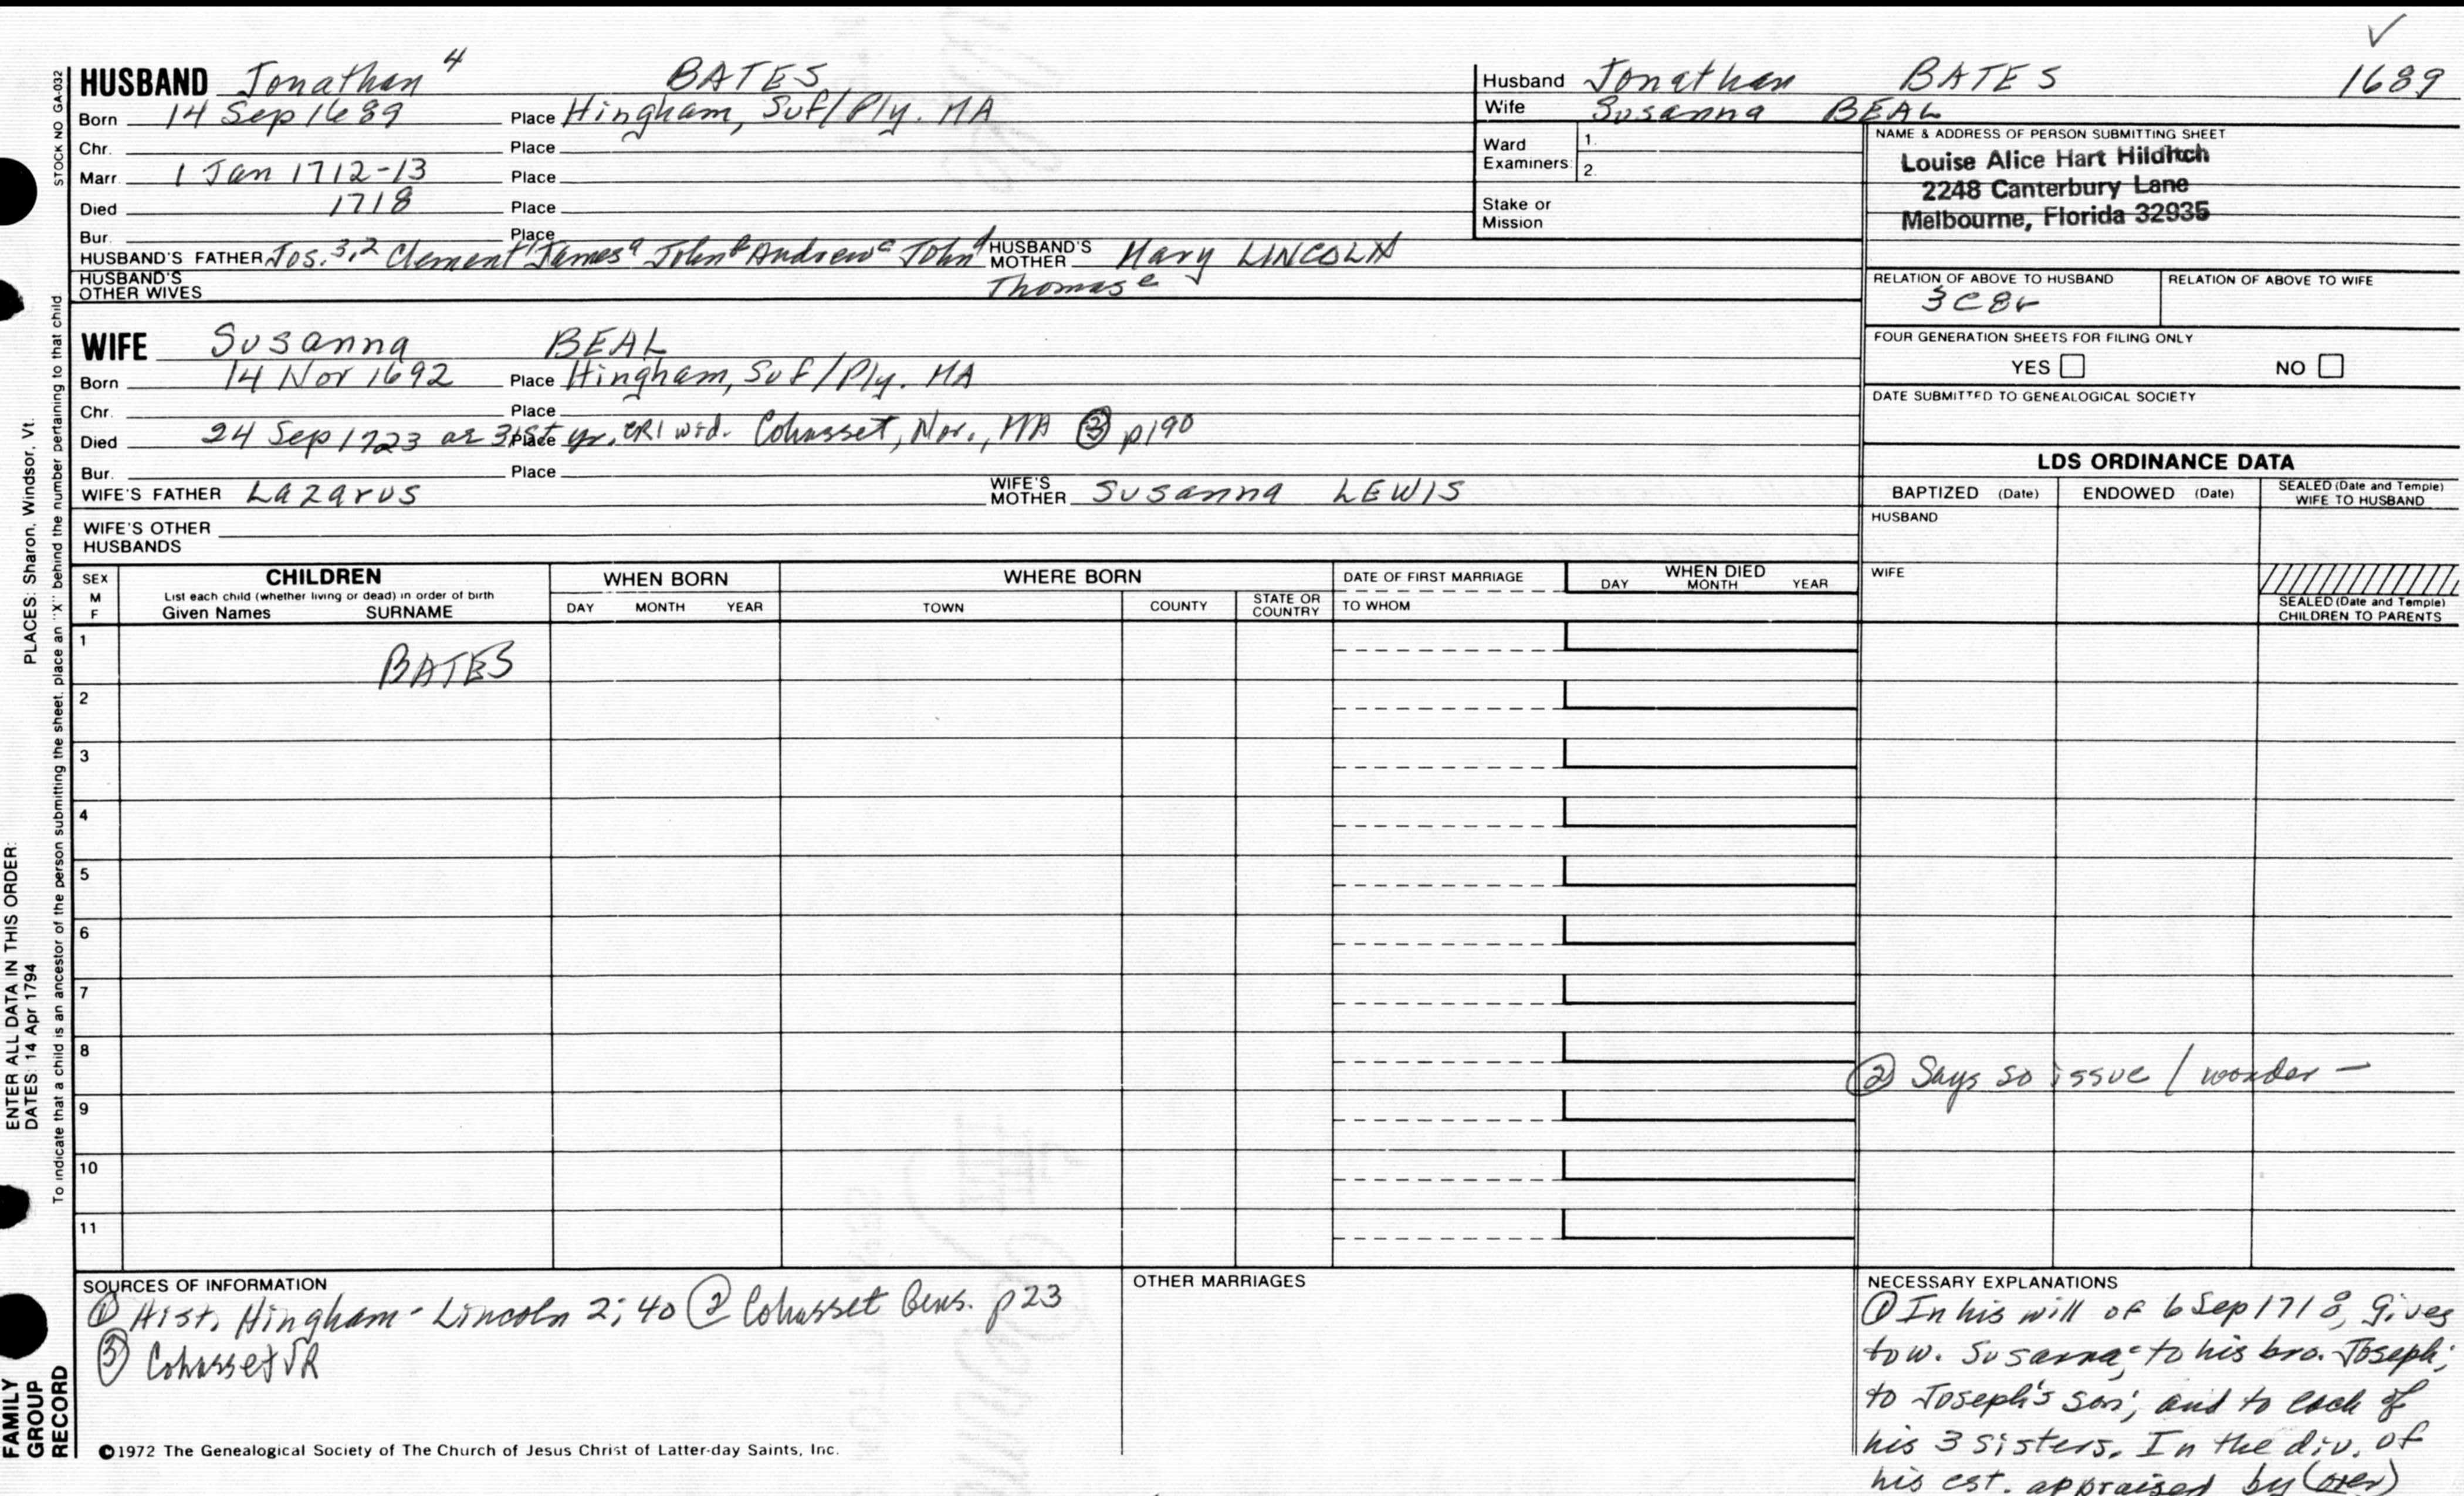 HUSBAND Jonathan 4 BATES
Born 14 Sep 1689 Place Hingham, Suf/Ply. MA
Chr. Place
Marr. 1 Jan 1712-13 Place
Died 1718 Place
Bur. Place
HUSBAND'S FATHER Jos. 3,2 Clement 1 James a John b Andrew c John d HUSBAND'S MOTHER Mary LINCOLN
Thomas e
HUSBAND'S OTHER WIVES
WIFE Susanna BEAL
Born 14 Nov 1692 Place Hingham, Suf/Ply. MA
Chr. Place
Died 24 Sep 1723 ae 31st yr. CR1 wid. Place Cohasset, Nor., MA ③ p190
Bur. Place
WIFE'S FATHER Lazarus WIFE'S MOTHER Susanna LEWIS
WIFE'S OTHER HUSBANDS
Husband Jonathan BATES 1689
Wife Susanna BEAL
Ward Examiners: 1. 2.
Stake or Mission
NAME & ADDRESS OF PERSON SUBMITTING SHEET
Louise Alice Hart Hilditch
2248 Canterbury Lane
Melbourne, Florida 32935
RELATION OF ABOVE TO HUSBAND RELATION OF ABOVE TO WIFE
3C8r
FOUR GENERATION SHEETS FOR FILING ONLY
YES NO
DATE SUBMITTED TO GENEALOGICAL SOCIETY
LDS ORDINANCE DATA
BAPTIZED (Date) ENDOWED (Date) SEALED (Date and Temple) WIFE TO HUSBAND
HUSBAND
WIFE
SEALED (Date and Temple) CHILDREN TO PARENTS
SEX M F
CHILDREN
List each child (whether living or dead) in order of birth
Given Names SURNAME
WHEN BORN
DAY MONTH YEAR
WHERE BORN
TOWN COUNTY STATE OR COUNTRY
DATE OF FIRST MARRIAGE
TO WHOM
WHEN DIED
DAY MONTH YEAR
1 BATES
2
3
4
5
6
7
8
② Says so issue / wonder —
9
10
11
SOURCES OF INFORMATION
① Hist. Hingham - Lincoln 2; 40 ② Cohasset Gens. p23
③ Cohasset VR
OTHER MARRIAGES
NECESSARY EXPLANATIONS
① In his will of 6 Sep 1718, gives
to w. Susanna; to his bro. Joseph;
to Joseph's son; and to each of
his 3 sisters. In the div. of
his est. appraised by (over)
©1972 The Genealogical Society of The Church of Jesus Christ of Latter-day Saints, Inc.
STOCK NO GA-032
ENTER ALL DATA IN THIS ORDER:
DATES: 14 Apr 1794 PLACES: Sharon, Windsor, Vt.
To indicate that a child is an ancestor of the person submitting the sheet, place an "X" behind the number pertaining to that child
FAMILY
GROUP
RECORD